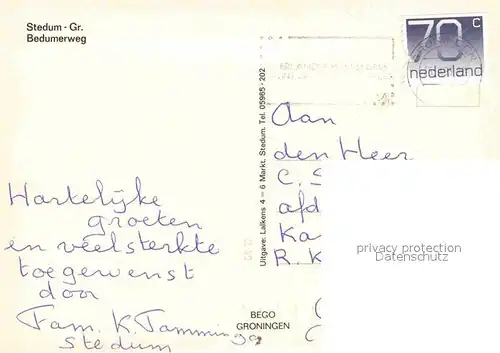 Stedum - Gr.
Bedumerweg
70 c
nederland
Uitgave: Lalkens 4 – 6 Markt, Stedum. Tel. 05965 - 202
Aan
den Heer
C. S
afd
Ka
R K
privacy protection
Datenschutz
Hartelijke
groeten
en veel sterkte
toegewenst
door
Fam. K. Tamminga
Stedum
BEGO
GRONINGEN